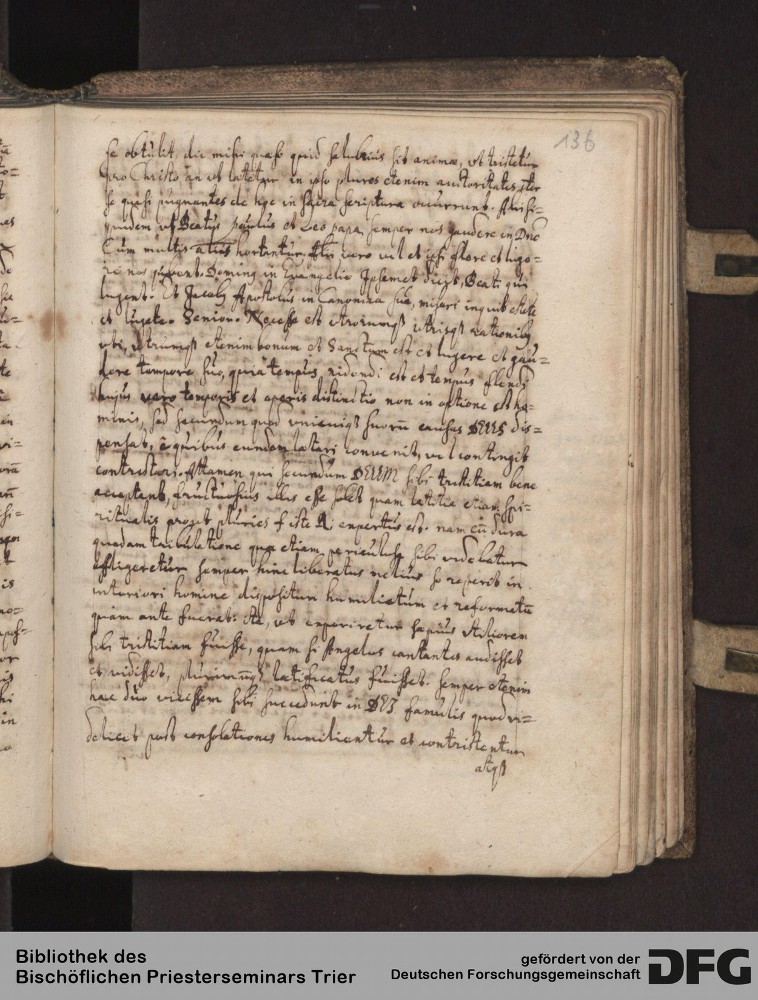 136
se obtulit, dic mihi quaso quid salubrius sit animæ, ut tristetur
pro Christo an ut lætetur in ipso plures etenim auctoritates inter
se quasi pugnantes de hoc in sacra scriptura occurrunt.
quidem ut Beatus paulus et Leo papa, semper nos gaudere in Dno
Cum multis aliis hortantur, Alii vero ut et ipsi flere et lugo=
re nos jubent. Dominus in Euangelio Ipsemet dicit, Beati qui
lugent. Et Jacobus Apostolus in Canonica sua, miseri inquit estote
et lugete. Senior. Necesse est utrorumqs utrisqs rationibus
uti, utrumqs etenim bonum et Sanctum est et lugere et gau=
dere tempore suo, quia tempus ridendi est et tempus flendi
hujus vero temporis et operis distinctio non in optione est ho=
minis, sed secundum quod unicuiqs suorū causas DEUS dis=
pensat, è quibus eundem lætari convenit, vel contingit
contristari. Attamen qui secundum DEUM sibi tristitiam bene
acceptant, fructuosius illis esse solet quam lætitia etiam spi=
ritualis prosit pluries iste expertus est. nam cū dura
quadam tribulatione quæ etiam periculosa sibi videbatur
affligeretur semper hinc liberatus melius se reperit in
interiori homine dispositum humiliatum et reformatū
quam ante fuerat: ita, ut experiretur sæpius utiliorem
sibi tristitiam fuisse, quam si Angelos cantantes audisset
et vidisset, plurimumqs lætificatus fuisset. Semper etenim
hæc duo vicissim sibi succedunt in DEI famulis quod vi=
delicet post consolationes humilientur et contristentur
atqs
Bibliothek des
Bischöflichen Priesterseminars Trier
gefördert von der
Deutschen Forschungsgemeinschaft
DFG